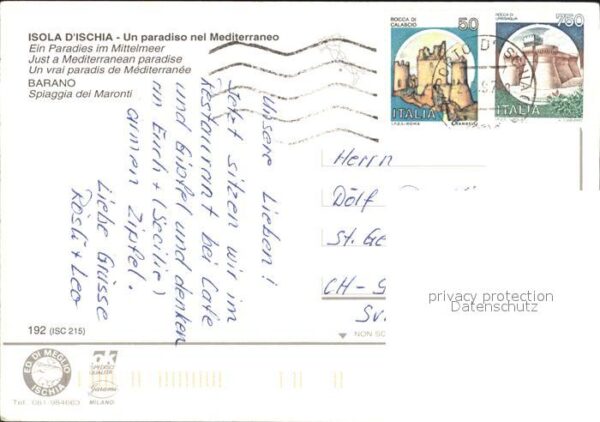 ISOLA D'ISCHIA - Un paradiso nel Mediterraneo
Ein Paradies im Mittelmeer
Just a Mediterranean paradise
Un vrai paradis de Méditerranée
BARANO
Spiaggia dei Maronti
ROCCA DI
CALASCIO
50
ITALIA
ROCCA DI
URBISAGLIA
750
ITALIA
Unsere Lieben!
Jetzt sitzen wir im
Restaurant bei Cafe
und Gipfel und denken
an Euch + (Secilie)
armen Zipfel.
Liebe Grüsse
Rösli + Leo
Herrn
Dölf
St. Ge
CH - 9
Sv.
privacy protection
Datenschutz
192 (ISC 215)
NON SC
ED. DI MEGLIO
ISCHIA
Tel. 081-984663
MILANO